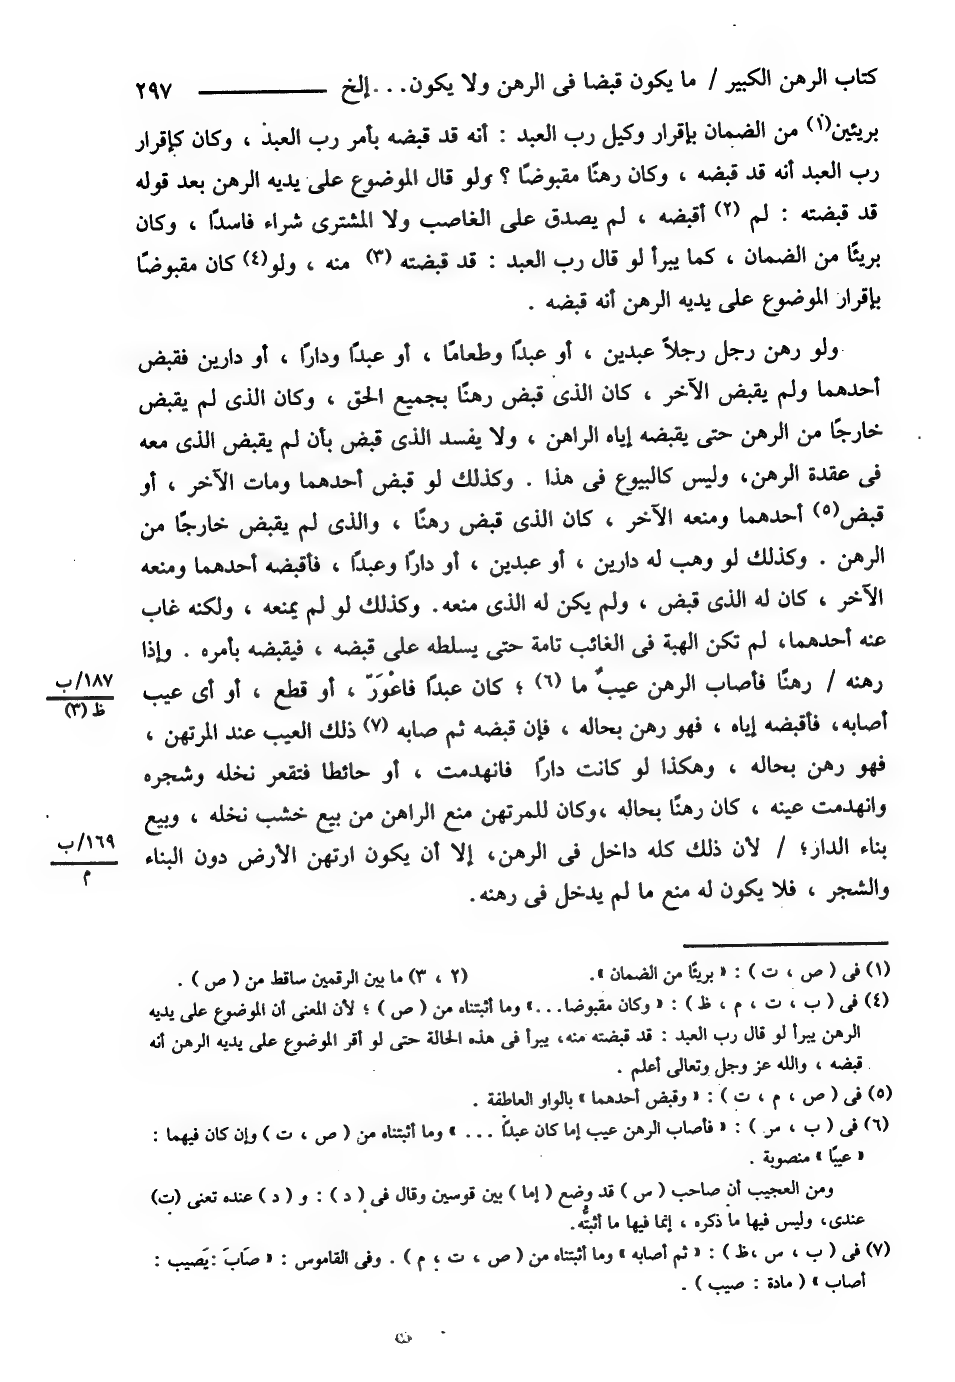 كتاب الرهن الكبير / ما يكون قبضا فى الرهن ولا يكون . . . إلخ ٢٩٧
بريئين(١) من الضمان بإقرار وكيل رب العبد : أنه قد قبضه بأمر رب العبد ، وكان كإقرار
رب العبد أنه قد قبضه ، وكان رهنًا مقبوضًا ؟ ولو قال الموضوع على يديه الرهن بعد قوله
قد قبضته : لم (٢) أقبضه ، لم يصدق على الغاصب ولا المشترى شراء فاسدًا ، وكان
بريئًا من الضمان ، كما يبرأ لو قال رب العبد : قد قبضته (٣) منه ، ولو(٤) كان مقبوضًا
بإقرار الموضوع على يديه الرهن أنه قبضه .
ولو رهن رجل رجلاً عبدين ، أو عبدًا وطعامًا ، أو عبدًا ودارًا ، أو دارين فقبض
أحدهما ولم يقبض الآخر ، كان الذى قبض رهنًا بجميع الحق ، وكان الذى لم يقبض
خارجًا من الرهن حتى يقبضه إياه الراهن ، ولا يفسد الذى قبض بأن لم يقبض الذى معه
فى عقدة الرهن، وليس كالبيوع فى هذا . وكذلك لو قبض أحدهما ومات الآخر ، أو
قبض(٥) أحدهما ومنعه الآخر ، كان الذى قبض رهنًا ، والذى لم يقبض خارجًا من
الرهن . وكذلك لو وهب له دارين ، أو عبدين ، أو دارًا وعبدًا ، فأقبضه أحدهما ومنعه
الآخر ، كان له الذى قبض ، ولم يكن له الذى منعه. وكذلك لو لم يمنعه ، ولكنه غاب
عنه أحدهما، لم تكن الهبة فى الغائب تامة حتى يسلطه على قبضه ، فيقبضه بأمره . وإذا
رهنه / رهنًا فأصاب الرهن عيبٌ ما (٦) ؛ كان عبدًا فاعْوَرّ ، أو قطع ، أو أى عيب
١٨٧/ب
ظ (٣)
أصابه، فأقبضه إياه ، فهو رهن بحاله ، فإن قبضه ثم صابه (٧) ذلك العيب عند المرتهن ،
فهو رهن بحاله ، وهكذا لو كانت دارًا فانهدمت ، أو حائطا فتقعر نخله وشجره
وانهدمت عينه ، كان رهنًا بحاله ،وكان للمرتهن منع الراهن من بيع خشب نخله ، وبيع
بناء الدار؛ / لأن ذلك كله داخل فى الرهن، إلا أن يكون ارتهن الأرض دون البناء
١٦٩/ب
م
والشجر ، فلا يكون له منع ما لم يدخل فى رهنه.
(١) فى ( ص ، ت ) : « بريئًا من الضمان ». (٢ ، ٣) ما بين الرقمين ساقط من ( ص ) .
(٤) فى ( ب ، ت ، م ، ظ ) : « وكان مقبوضا. . .» وما أثبتناه من ( ص ) ؛ لأن المعنى أن الموضوع على يديه
الرهن يبرأ لو قال رب العبد : قد قبضته منه، يبرأ فى هذه الحالة حتى لو أقر الموضوع على يديه الرهن أنه
قبضه ، والله عز وجل وتعالى أعلم .
(٥) فى ( ص ، م ، ت ) : « وقبض أحدهما » بالواو العاطفة .
(٦) فى ( ب ، س ) : « فأصاب الرهن عيب إما كان عبدًا . . . » وما أثبتناه من ( ص ، ت ) وإن كان فيهما :
« عيبًا » منصوبة .
ومن العجيب أن صاحب ( س ) قد وضع ( إما ) بين قوسين وقال فى ( د ) : و ( د ) عنده تعنى (ت)
عندى، وليس فيها ما ذكره ، إنما فيها ما أثبتُّه.
(٧) فى ( ب ، س ،ظ ) : « ثم أصابه » وما أثبتناه من ( ص ، ت ، م ) . وفى القاموس : « صَابَ :يَصيب :
أصاب » ( مادة : صيب ) .